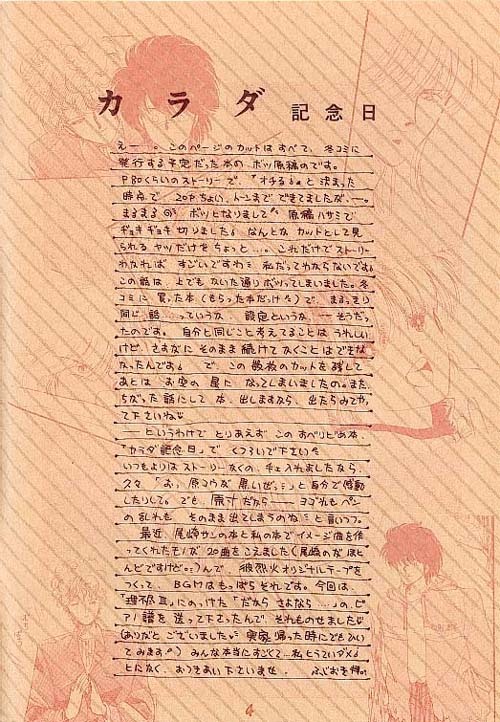 カラダ記念日
えー 。このページのカットはすべて、冬コミに
発行する予定だった本の ボツ原稿のです。
P80くらいのストーリーで、「オチるる」と決まった
時点で 20Pちょい、トーンまで できてましたが、ー。
まるまる ボツとなりまして 原稿ハサミで
ギョキギョキ 切りました なんとか カットとして見
られる ヤツだけを ちょっと…。これだけで ストーリー
わかれば すごいですわ 私だってわからないです
この話は、上でも ないた通り ボツってしまいました。冬
コミに 買った本(もらった本だっけ)で、まるっきり
同じ 話 …っていうか、設定というか、ー そうだっ
たのです。自分と同じこと考えてることは うれしい
けど、さすがに そのまま 続けてかくことは できな
なったんです で、この数枚のカットを残して
あとは お空の 星に なってしまいましたの。また、
ちがった 話にして 本、出しますなら、出たらみてや
って下さいね
ーというわけで とりあえず この
「カラダ記念日」で くつろいで下さい
いつもよりは ストーリーなくの、チェ入れましたなら、
久々「おっ、原コウが 黒いぜ」と自分で感動
したりして。でも 原寸だからー ヨゴれも ペン
の乱れも そのまま出てしまうのね と言いつつ。
最近、尾崎サンの本と 私の本で イメージ曲を作
ってくれたモノが 20曲をこえました(尾崎のが ほと
んどですけど)んで、 彼烈火オリジナルテープを
つくって、 BGMは もっぱら それです。今回は、
にのっけた「だから さよなら ……」の、ピ
アノ譜を 送って下さったんで、それものせました
(ありがと ございました 実家 帰った時にでもひい
てみます) みんな本当にすごくて…私 とうていダメ
とにかく、おつきあい下さいませ。
4